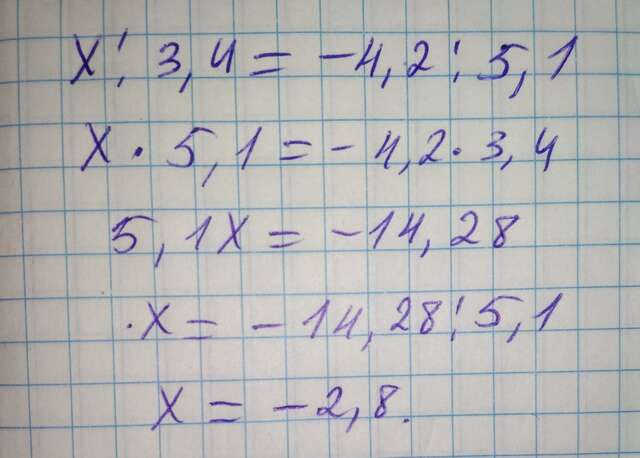 X : 3,4 = -4,2 : 5,1
X · 5,1 = -4,2 · 3,4
5,1X = -14,28
X = -14,28 : 5,1
X = -2,8.